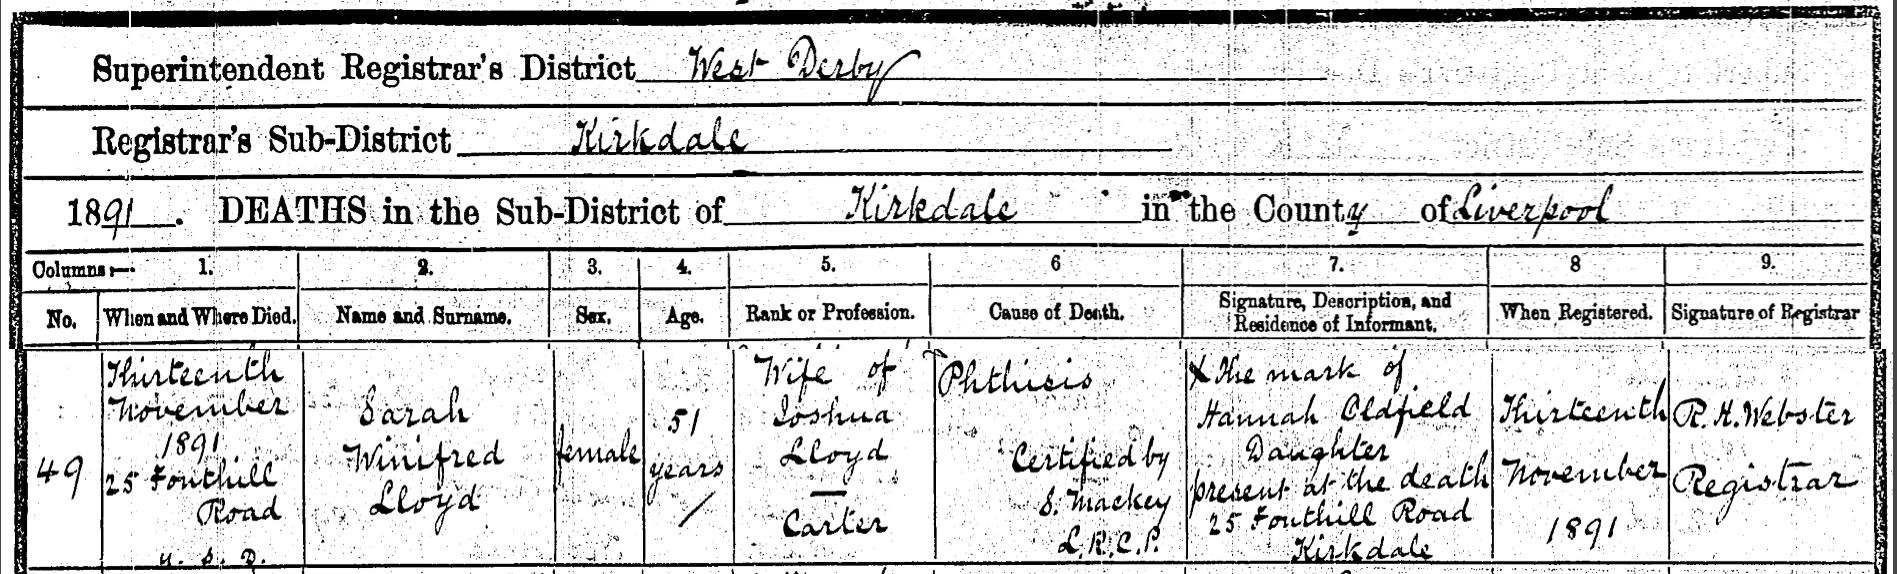 Superintendent Registrar's District West Derby
Registrar's Sub-District Kirkdale
1891. DEATHS in the Sub-District of Kirkdale in the County of Liverpool
Columns:— 1. 2. 3. 4. 5. 6 7. 8 9.
No. When and Where Died. Name and Surname. Sex. Age. Rank or Profession. Cause of Death. Signature, Description, and Residence of Informant. When Registered. Signature of Registrar
49
Thirteenth
November
1891
25 Fonthill
Road
U. S. D.
Sarah
Winifred
Lloyd
female
51
years
Wife of
Joshua
Lloyd
—
Carter
Phthisis
Certified by
S. Mackey
L.R.C.P.
X The mark of
Hannah Oldfield
Daughter
present at the death
25 Fonthill Road
Kirkdale
Thirteenth
November
1891
R. H. Webster
Registrar